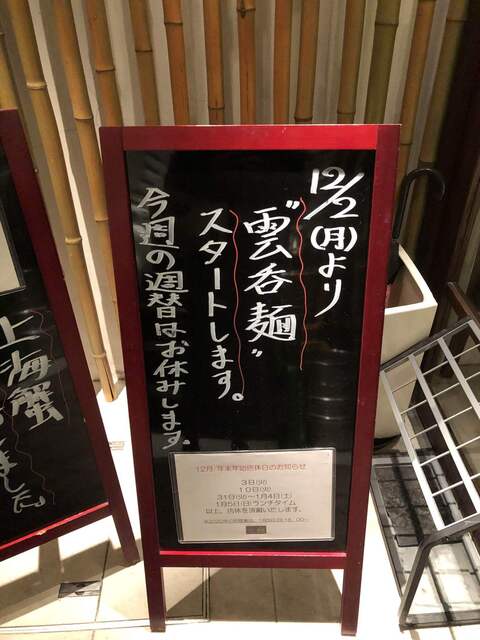 12/2(月)より
"雲呑麺"
スタートします。
今週の週替はお休みします。
12月/年末年始店休日のお知らせ
3日(火)
10日(火)
31日(火)～1月4日(土)
1月5日(日)ランチタイム
以上、店休を頂戴いたします。
上海蟹
ました。